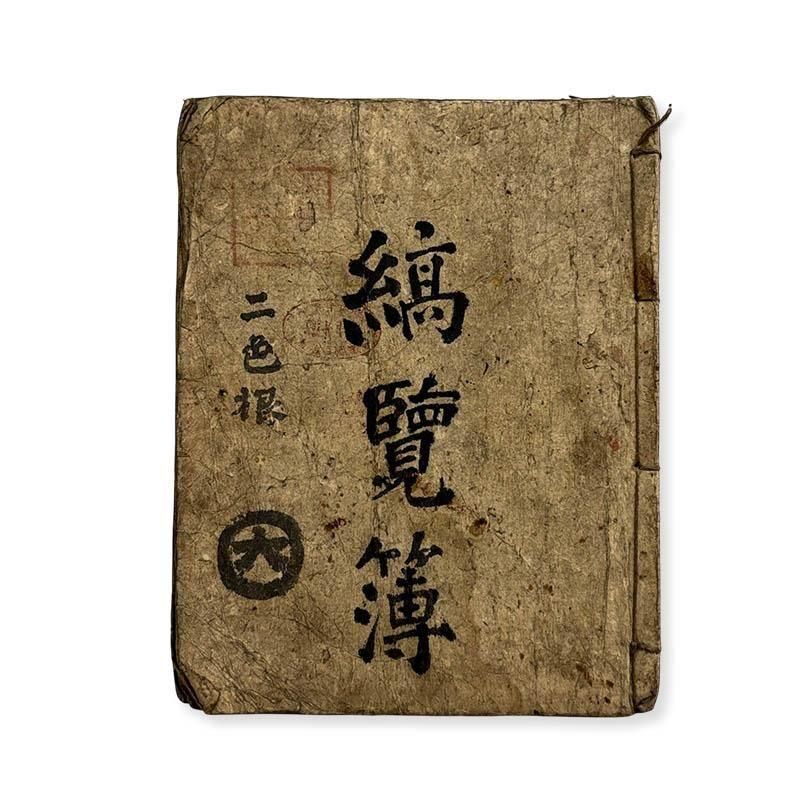 縞覽簿
二色根
大